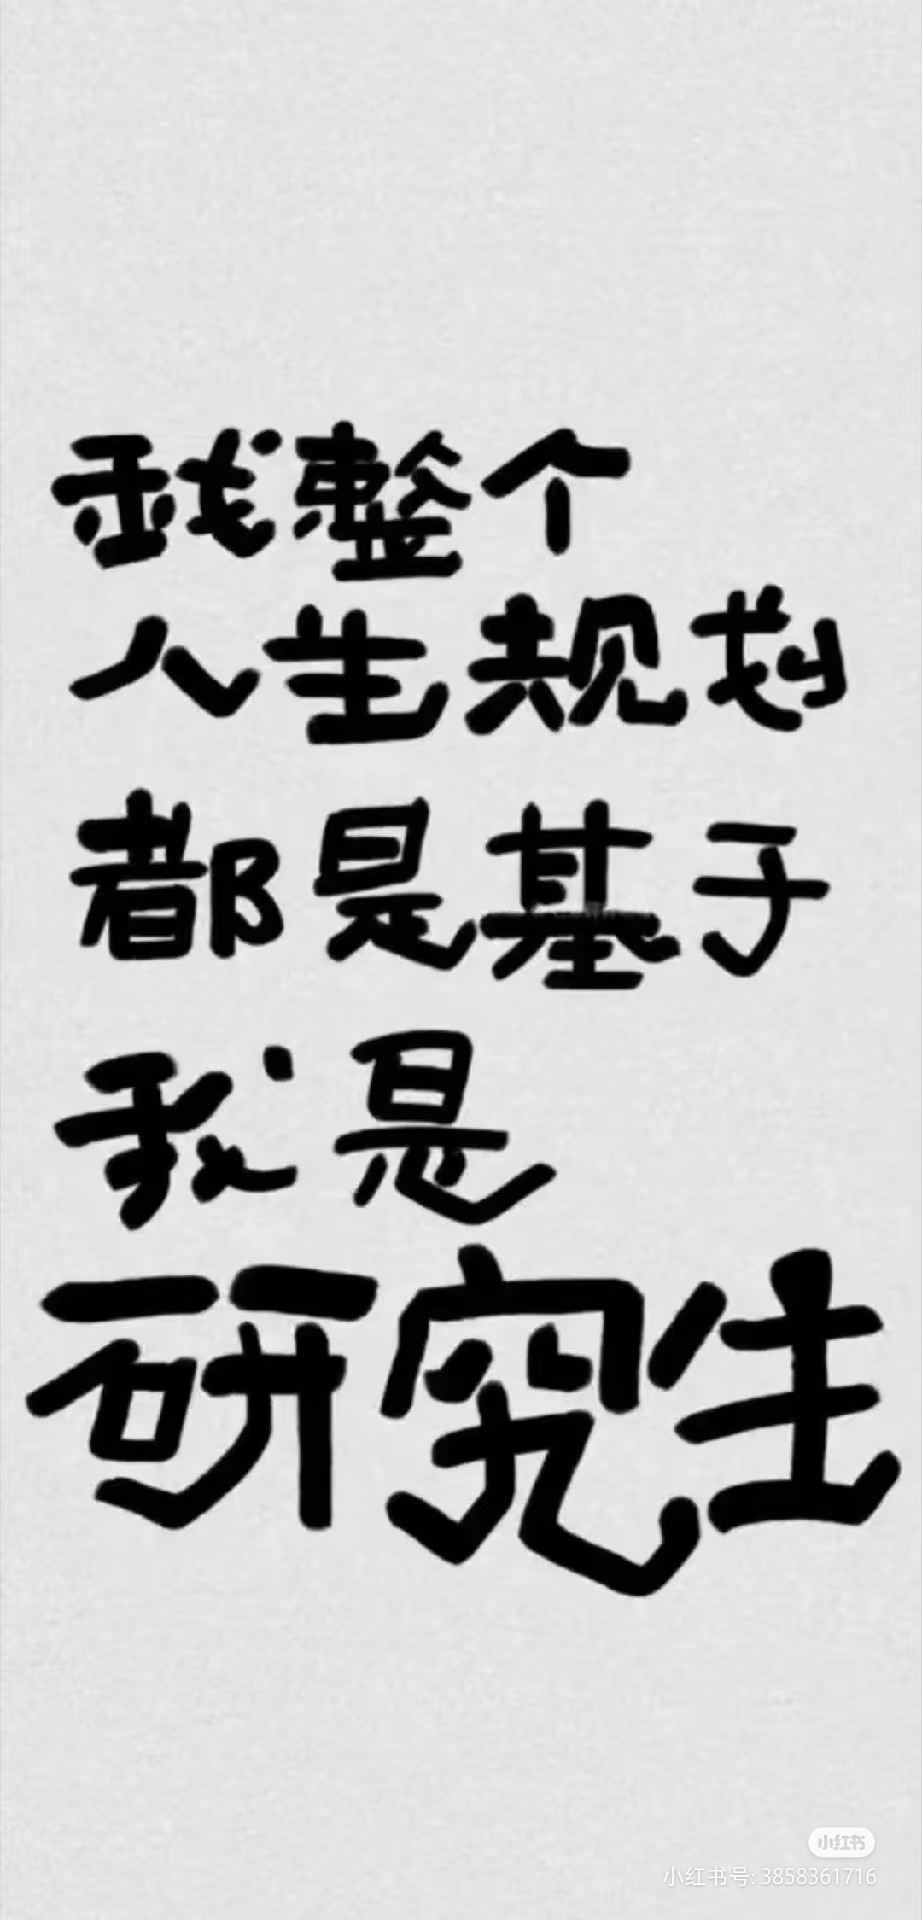 我整个
人生规划
都是基于
我是
研究生
小红书
小红书号: 3858361716